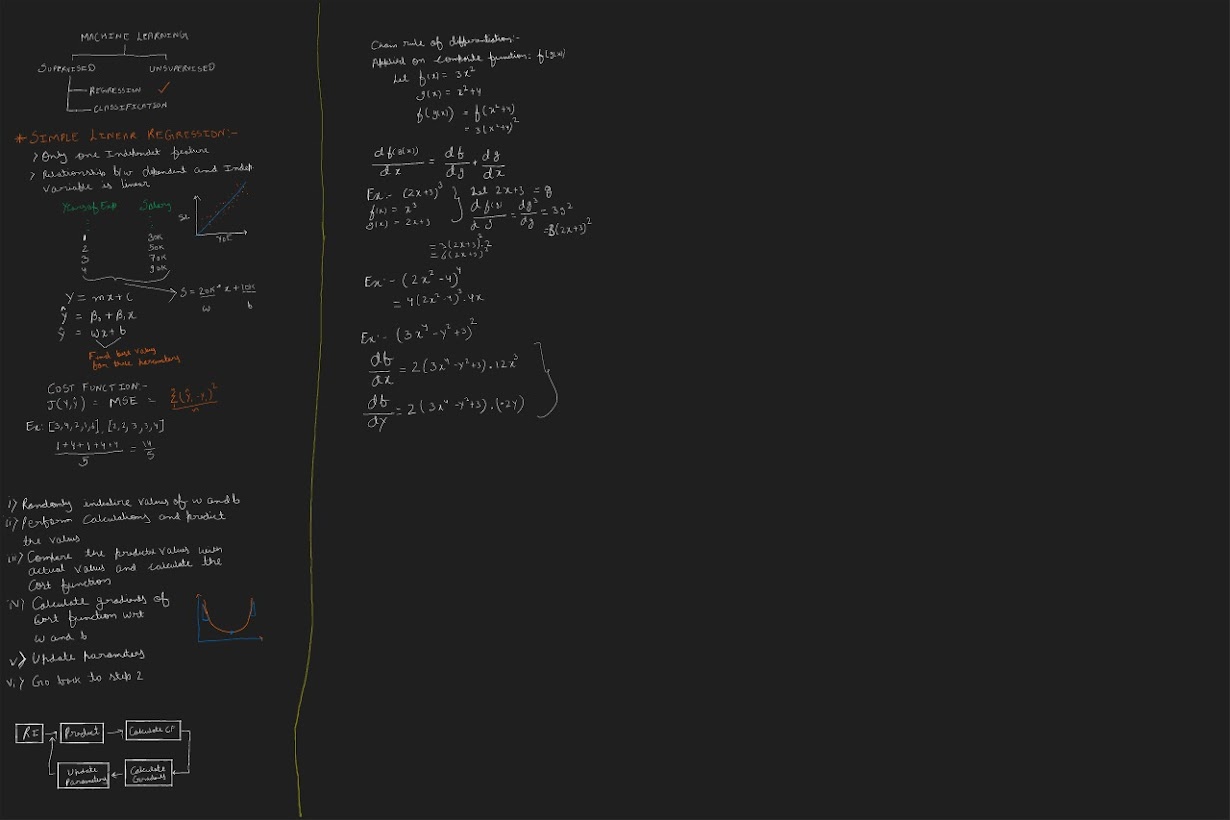 MACHINE LEARNING
SUPERVISED UNSUPERVISED
REGRESSION ✓
CLASSIFICATION
* SIMPLE LINEAR REGRESSION:-
> Only one Independet feature
> Relationship b/w dependent and Indep.
variable is linear
Years of Exp Salary
1 30K
2 50K
3 70K
4 90K
YOE
S = 20K * x + 10K
w b
Y = mx + c
ŷ = β₀ + β₁x
ŷ = wx + b
Find best values
for these parameters
COST FUNCTION:-
J(Y,ŷ) = MSE = Σ(ŷᵢ - yᵢ)² / n
Ex: [3,4,2,1,6], [2,2,3,3,4]
1+4+1+4+4 / 5 = 14/5
i) Randomly initialize values of w and b
ii) Perform Calculations and predict
the values
iii) Compare the predicted values with
actual values and calculate the
Cost function
iv) Calculate gradients of
Cost function wrt
w and b
v) Update parameters
vi) Go back to step 2
RI → Predict → Calculate CF
Update Parameters ← Calculate Gradients
Chain rule of differentiation:-
Applied on composite function: f(g(x))
Let f(x) = 3x²
g(x) = x²+4
f(g(x)) = f(x²+4)
= 3(x²+4)²
df(g(x))/dx = df/dg * dg/dx
Ex:- (2x+3)³ } Let 2x+3 = g
f(x) = x³
g(x) = 2x+3
df(g)/dg = dg³/dg = 3g²
= 3(2x+3)²
= 3(2x+3)².2
= 6(2x+3)²
Ex:- (2x²-4)⁴
= 4(2x²-4)³.4x
Ex:- (3x⁴-y²+3)²
df/dx = 2(3x⁴-y²+3).12x³
df/dy = 2(3x⁴-y²+3).(-2y)